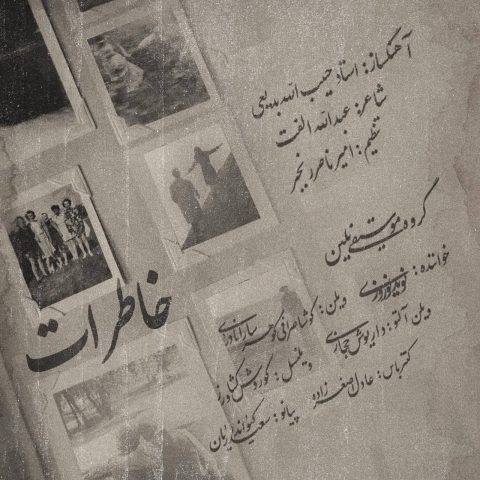 آهنگساز: استاد حبیب الله بدیعی
شاعر: عبدالله الفت
تنظیم: امیر ناصر رنجبر
گروه موسیقی نیلین
خواننده: نوید نوروزی
ویلن: کوشا صرافی گوهر سارا نادری
ویلن آلتو: داریوش حجازی
ویلنسل: کوروش کشاورز
کنترباس: عادل اصغرزاده
پیانو: سعید کیوانداریان
خاطرات